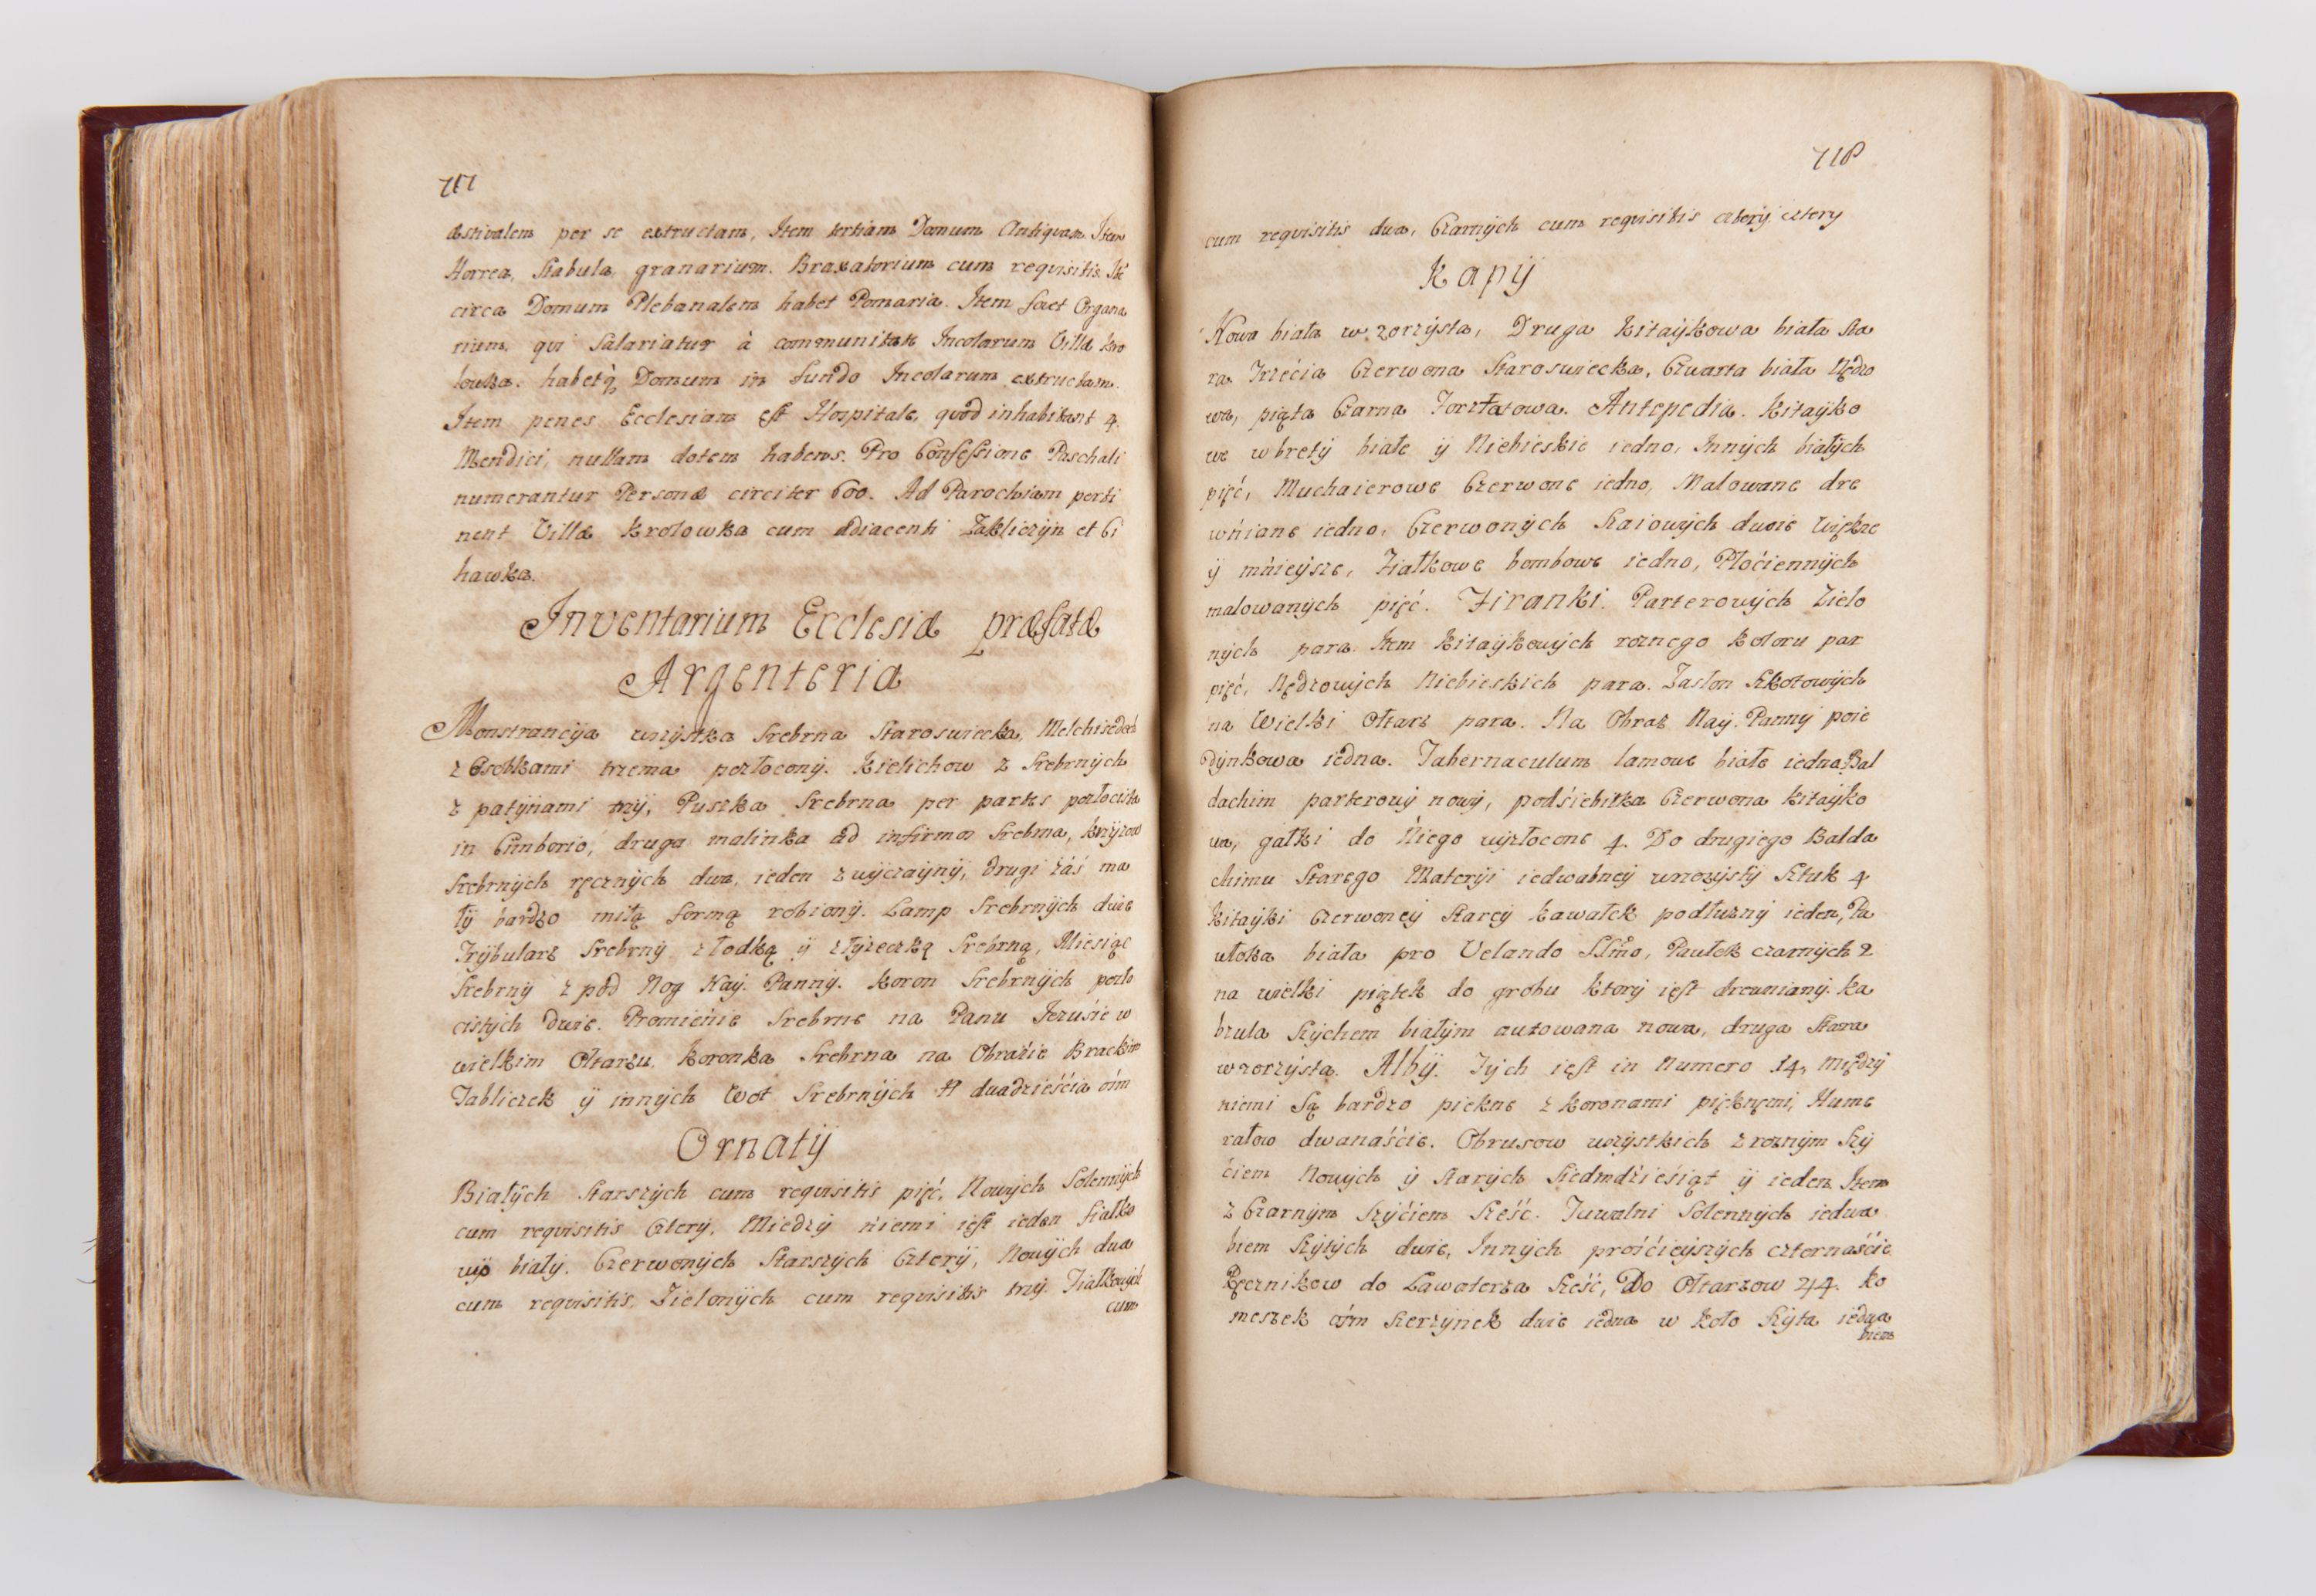 717
æstivalem per se extructam, Item tertiam Domum Antiquam Item
Horrea, Stabula, granarium. Braxatorium cum requisitis. Itē
circa Domum Plebanalem habet Pomaria. Item fovet Organa
rium, qui Salariatur à communitate Incolarum Villæ Kro
lowka. habetq, Domum in fundo Incolarum extructam.
Item penes Ecclesiam est Hospitale, quod inhabitant 4.
Mendici, nullam dotem habens. Pro Confessione Paschali
numerantur Personæ circiter 600. Ad Parochiam perti
nent Villæ Krolowka cum adiacenti Zakliczyn et Ci
hawka.
Inventarium Ecclesiæ præfatæ
Argenteria
Monstrancÿa wszÿstka Srebrna Staroswiecka, Melchisedech
z Osobkami trzema pozłoconÿ. Kielichow z Srebrnÿch
z patÿnami trzÿ, Puszka Srebrna per partes pozłocista
in Cimborio, druga malinka ad infirmos Srebrna, krzÿzow
Srebrnÿch ręcznÿch dwa, ieden zwÿczaÿnÿ, drugi záś ma
łÿ bardzo miłą formą robionÿ. Lamp Srebrnÿch dwie
Trÿbularz Srebrnÿ z łodką ÿ z łÿzeczką Srebrną, Miesiąc
Srebrnÿ z pod Nog Naÿ. Pannÿ. Koron Srebrnÿch pozło
cistÿch dwie. Promienie Srebrne na Panu Jezusie w
wielkim Ołtarzu. Koronka Srebrna na Obrazie Brackim
Tabliczek ÿ innÿch Wot Srebrnÿch # dwadzieścia ośm
Ornatÿ
Białÿch Starszÿch cum requisitis pięć, Nowÿch Solennÿch
cum requisitis Czterÿ, Miedzÿ niemi iest ieden fiałko
wÿ białÿ. Czerwonÿch Starszÿch Czterÿ, Nowÿch dwa
cum requisitis, Zielonÿch cum requisitis trzÿ. Fiałkowÿch
cum
718
cum requisitis dwa, Czarnÿch cum requisitis czterÿ cztery
Kapÿ
Nowa biała wzorzÿsta, Druga kitaÿkowa biała sta
ra. Trzecia Czerwona Staroswiecka, Czwarta biała Nędzo
wa, piąta Czarna Forsztatowa. Antepedia. Kitaÿko
we w bretÿ białe ÿ Niebieskie iedno, Innÿch białÿch
pięć, Muchaierowe Czerwone iedno, Malowane dre
wniane iedno, Czerwonÿch Staiowÿch dwoie większe
ÿ mnieÿsze, Fiałkowe bombowe iedno, Płóciennÿch
malowanÿch pięć. Firanki. Parterowÿch Zielo
nÿch para. Item Kitaÿkowÿch roznego koloru par
pięć, Nędzowÿch Niebieskich para. Zaslon Szkotowÿch
na Wielki Ołtarz para. Na Obraz Naÿ. Pannÿ poie
dÿnkowa iedna. Tabernaculum lamowe białe iedno. Bal
dachim parterowÿ nowÿ, podśiebitka Czerwona kitaÿko
wa, gałki do Niego wÿzłocone 4. Do drugiego Balda
chimu Starego Materÿi iedwabneÿ wzorzÿstÿ Sztuk 4
Kitaÿki Czerwoneÿ Stareÿ kawałek podłuznÿ ieden, Pa
włoka biała pro Velando SSmo, Pawłok czarnÿch 2
na wielki piątek do grobu ktorÿ iest drewnianÿ. Ka
bzula Sztÿchem białÿm autowana nowa, druga Stara
wzorzÿsta. Albÿ. Tÿch iest in Numero 14, Międzÿ
niemi Są bardzo piekne z koronami pięknemi, Hume
rałow dwanaście. Obrusow wszÿstkich z roznÿm Szÿ
ciem Nowÿch ÿ Starÿch Siedmdziesiąt ÿ ieden. Item
z Czarnÿm Szÿciem Sześć. Tuwalni Solennÿch iedwa
biem Szÿtÿch dwie, Innÿch prościeÿszÿch czternaście
Ręcznikow do Lawaterza Sześć, Do Ołtarzow 24. Ko
meszek ośm Skrzÿnek dwie iedna w koło Szÿta iedwa
biem